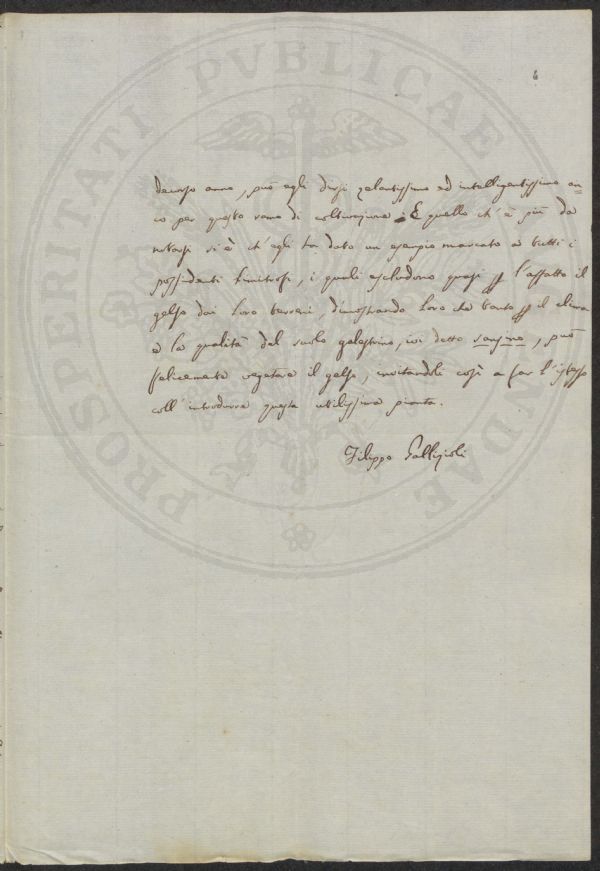 6
decorso anno, può egli dirsi zelantissimo ed intelligentissimo an=
co per questo ramo di coltivazione. E quello ch'è più da
notarsi si è ch'egli ha dato un esempio marcato a tutti i
possidenti limitrofi, i quali escludono quasi l'affatto il
gelso dai loro terreni, dimostrando loro che tanto il clima
e la qualità del suolo galestrino, ivi detto, può
felicemente vegetare il gelso, invitandoli così a far l'istesso
coll'introdurre questa utilissima pianta.
Filippo Gallizioli
PROSPERITATI PVBLICAE AVGENDAE